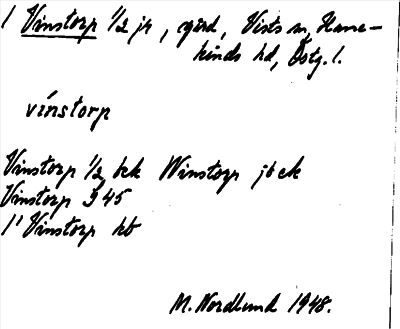 1 Vinstorp 1/2 jr, gård, Vists sn, Hane-
kinds hd, Östg. l.
vinstorp
Vinstorp 1/2 bek Winstorp jbek
Vinstorp G 45
1' Vinstorp hb
M. Nordlund 1948.